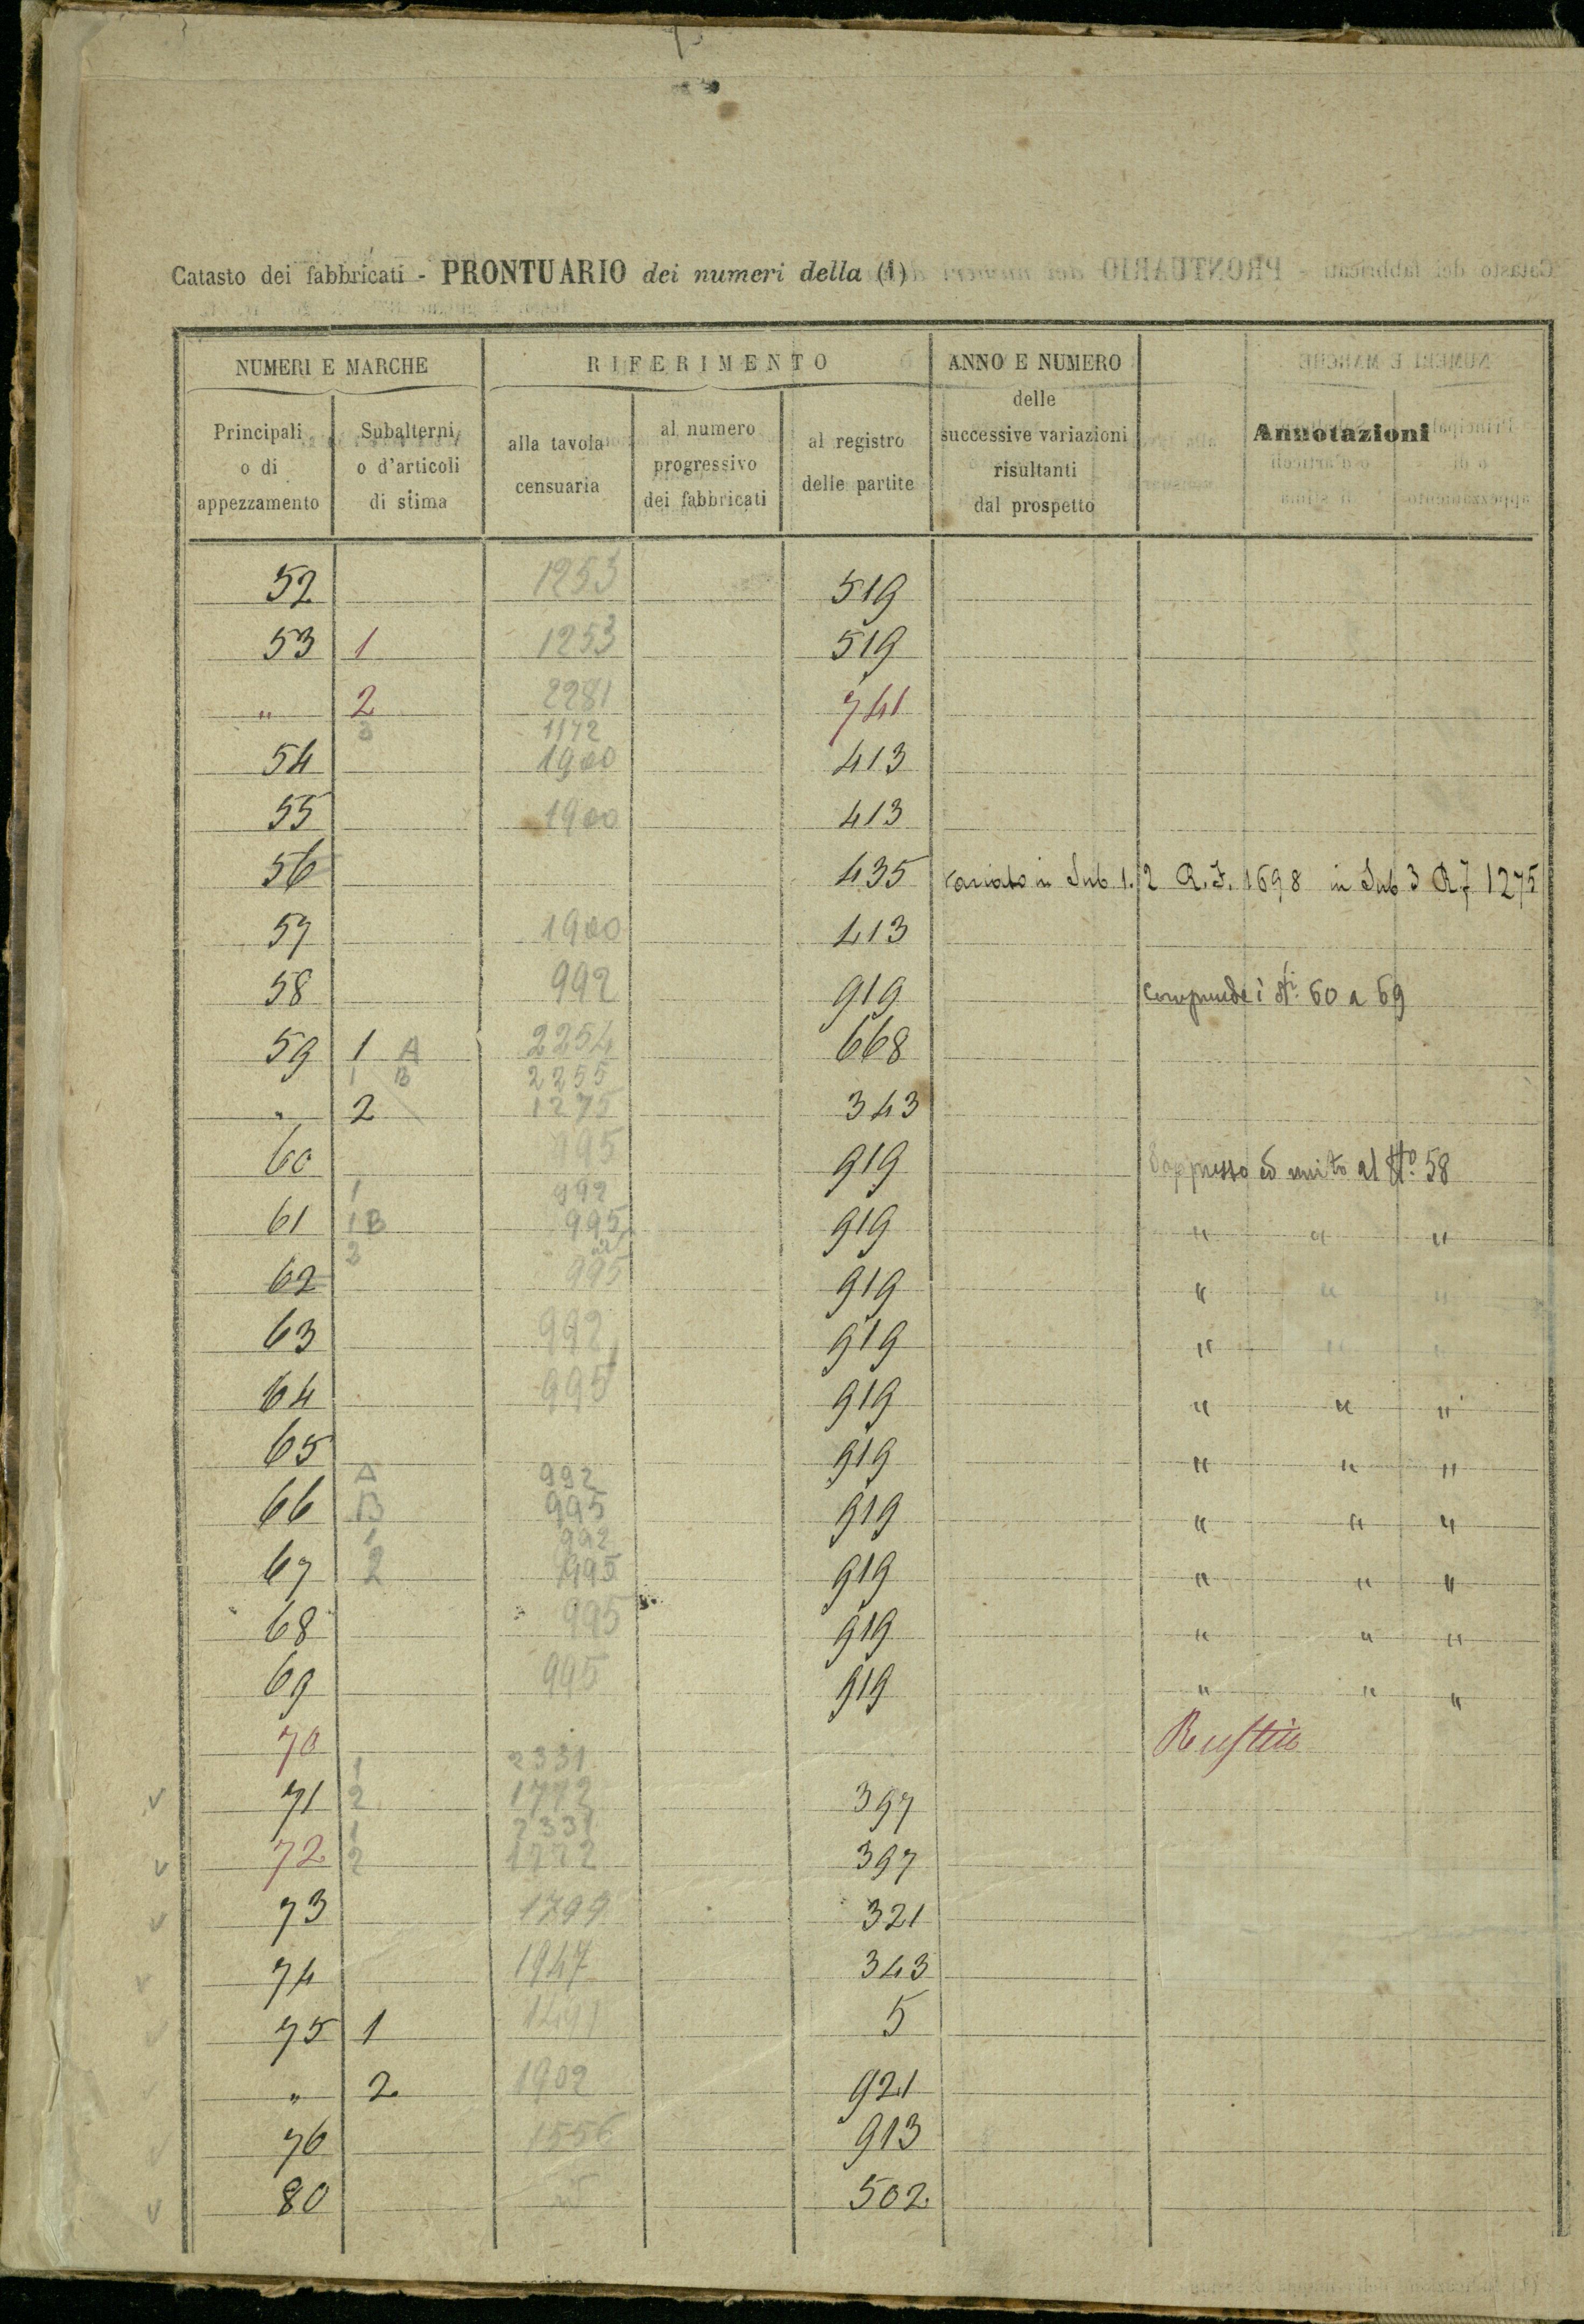 Catasto dei fabbricati - PRONTUARIO dei numeri della (1)
NUMERI E MARCHE RIFERIMENTO ANNO E NUMERO
delle successive variazioni risultanti dal prospetto
Annotazioni
Principali o di appezzamento
Subalterni o d'articoli di stima
alla tavola censuaria
al numero progressivo dei fabbricati
al registro delle partite
52 1253 519
53 1 1253 519
" 2 2281 741
3 1172
54 1900 413
55 1900 413
56 435 variato in Sub 1. 2 R.F. 1698 in Sub 3 RF 1275
57 1900 413
58 992 919 Comprende i Ni. 60 a 69
59 1 A 2254 668
1 B 2255
" 2 1275 343
60 995 919 Soppresso ed unito al No. 58
1 992
61 1B 995 919 " " "
2
62 995 919 " " "
63 992 919 " " "
64 995 919 " " "
65 919 " " "
A 992
66 B 995 919 " " "
1 992
67 2 995 919 " " "
68 995 919 " " "
69 995 919 " " "
70 Rustico
1 2331
71 2 1772 397
1 2331
72 2 1772 397
73 1799 321
74 1947 343
75 1 1491 5
" 2 1902 921
76 1556 913
80 502